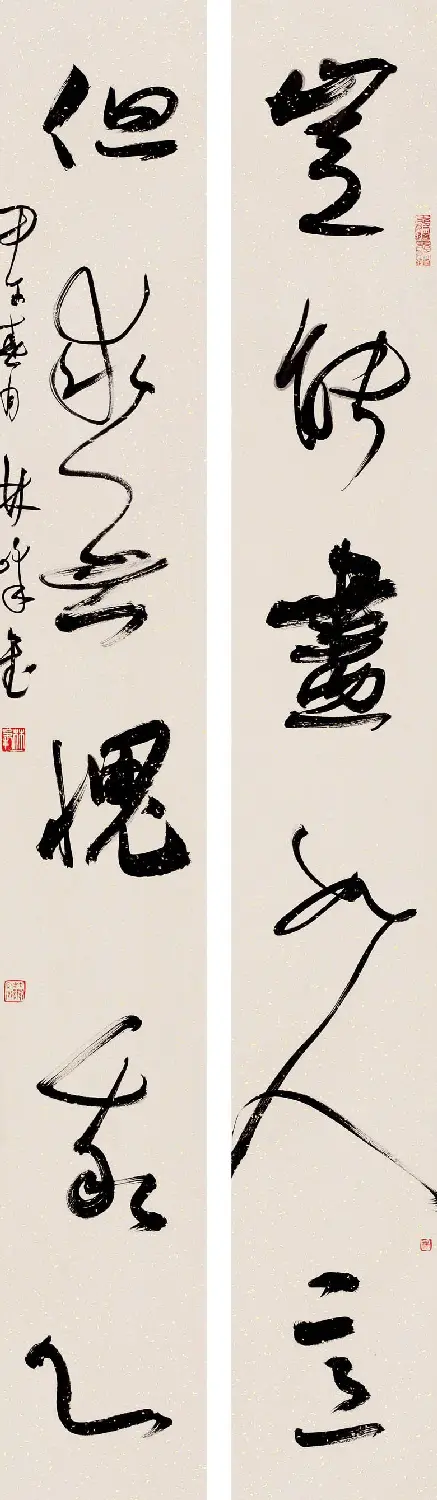 豈能盡如人意
但求無愧我心
甲午春月 林